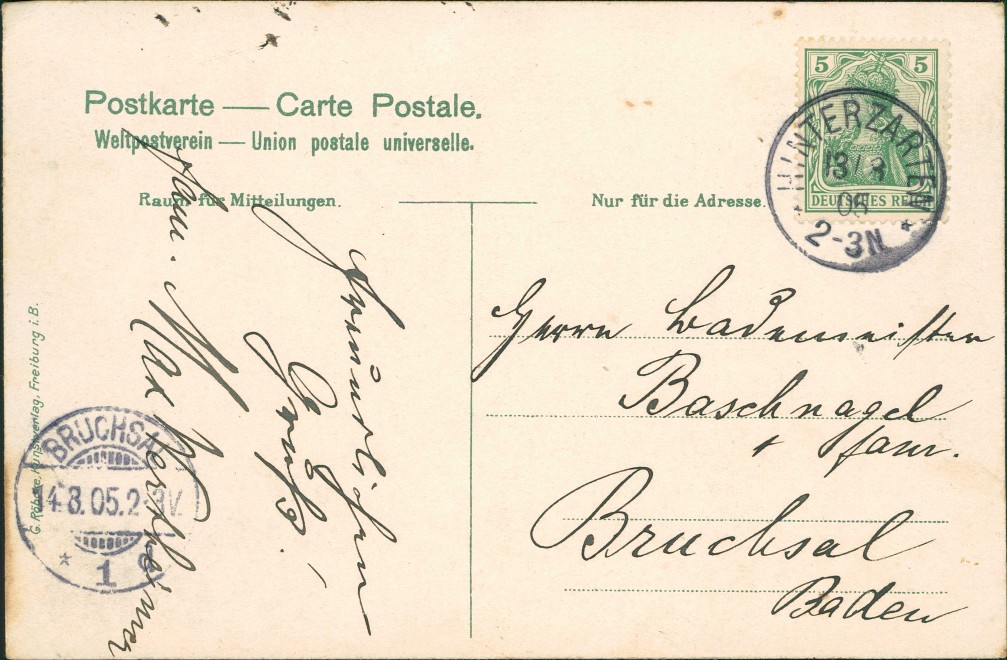 Postkarte — Carte Postale.
Weltpostverein — Union postale universelle.
Raum für Mitteilungen.
Nur für die Adresse.
5 5
DEUTSCHES REICH
HINTERZARTEN
13/8
05
2-3N
Freundlichen
Gruß!
Fam. Max Wertheimer
Herrn Bademeister
Baschnagel
+ Fam.
Bruchsal
Baden
BRUCHSAL
14.8.05.2-3V.
1
G. Röbcke, Kunstverlag, Freiburg i. B.